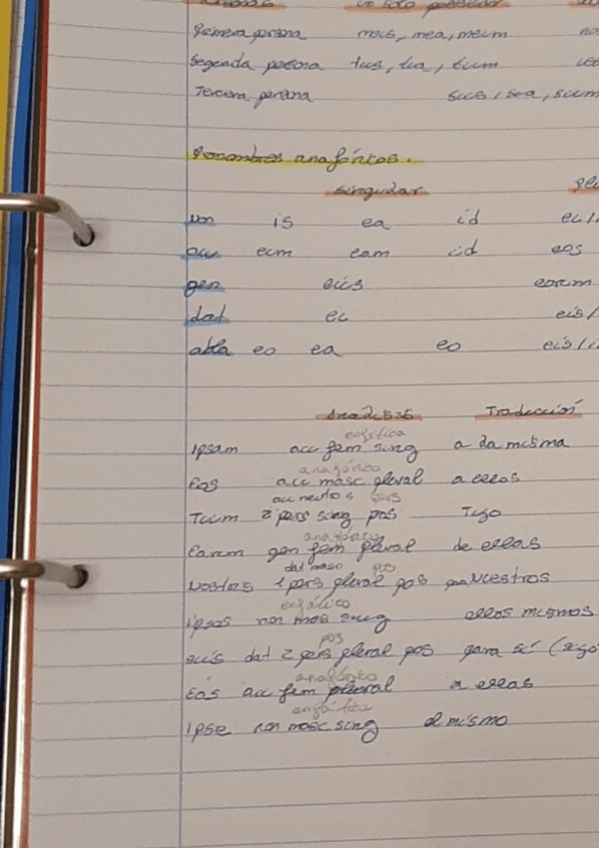 un solo poseedor
Primera persona meus, mea, meum
Segunda persona tus, tua, tuum
Tercera persona suus, sua, suum
Pronombres anafóricos.
singular
nom is ea id
acc eum eam id eos
gen eius eorum
dat ei eis/
abla eo ea eo eis/
Análisis Traducción
enfática
Ipsam acc fem sing a la misma
anafórico
Eos acc masc plural a ellos
acc neutro s
Tuum 2 pers sing pos Tuyo
anafórico
Earum gen fem plural de ellas
dat masc
Nostros 1 pers plural pos
enfático
ipsos nom mas sing ellos mismos
pos
suis dat 2 pers plural pos para sí
anafórico
Eas acc fem plural a ellas
enfático
Ipse nom masc sing el mismo